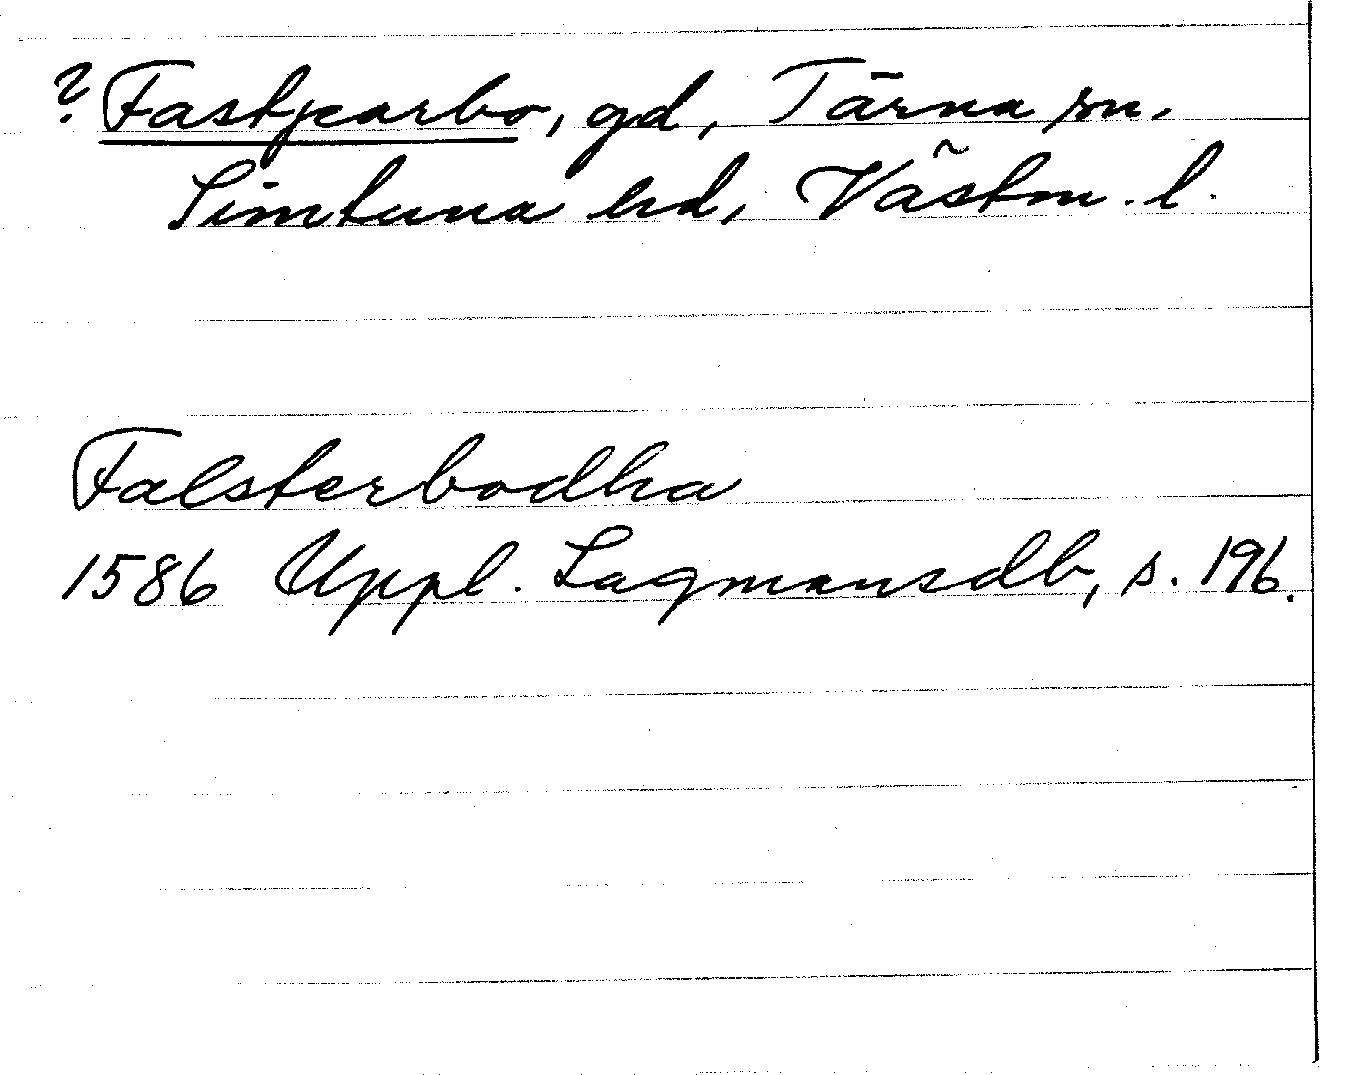 ? Fastjearbo, gd, Tärna sn.
Simtuna hd, Västm. l.
Falsterbodha
1586 Uppl. Lagmansdb, s. 196.